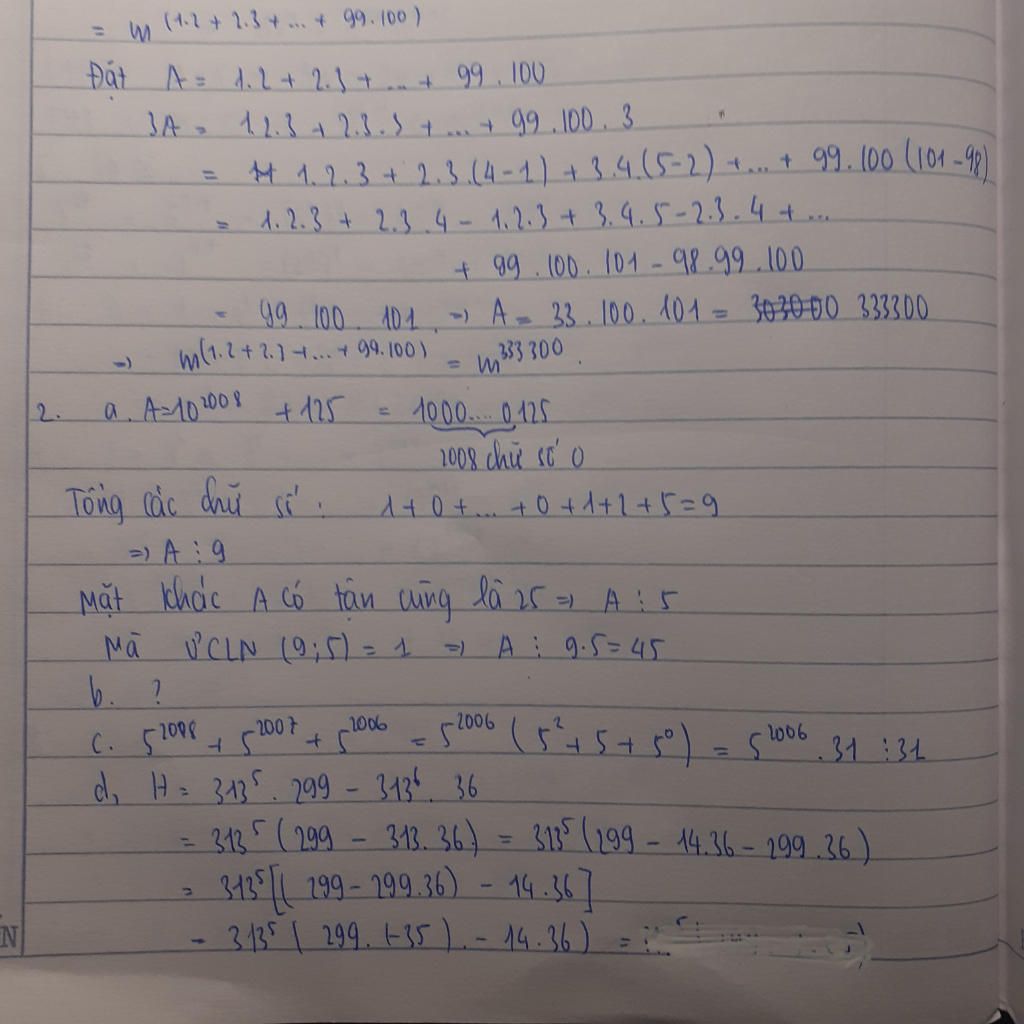 = m^(1.2 + 2.3 + ... + 99.100)
Đặt A = 1.2 + 2.3 + ... + 99.100
3A = 1.2.3 + 2.3.3 + ... + 99.100.3
= 1.2.3 + 2.3.(4-1) + 3.4.(5-2) + ... + 99.100(101-98)
= 1.2.3 + 2.3.4 - 1.2.3 + 3.4.5 - 2.3.4 + ...
+ 99.100.101 - 98.99.100
= 99.100.101 => A = 33.100.101 = 303000 333300
=> m^(1.2+2.3+...+99.100) = m^333300.
2. a. A=10^2008 + 125 = 1000...0125
2008 chữ số 0
Tổng các chữ số: 1+0+...+0+1+2+5=9
=> A ⋮ 9
Mặt khác A có tận cùng là 25 => A ⋮ 5
Mà ƯCLN (9;5) = 1 => A ⋮ 9.5=45
b. ?
c. 5^2008 + 5^2007 + 5^2006 = 5^2006 (5^2+5+5^0) = 5^2006.31 ⋮31
d, H = 313^5.299 - 313^6.36
= 313^5(299 - 313.36) = 313^5(299 - 14.36 - 299.36)
= 313^5[(299-299.36) - 14.36]
= 313^5(299.(-35).-14.36) =
N